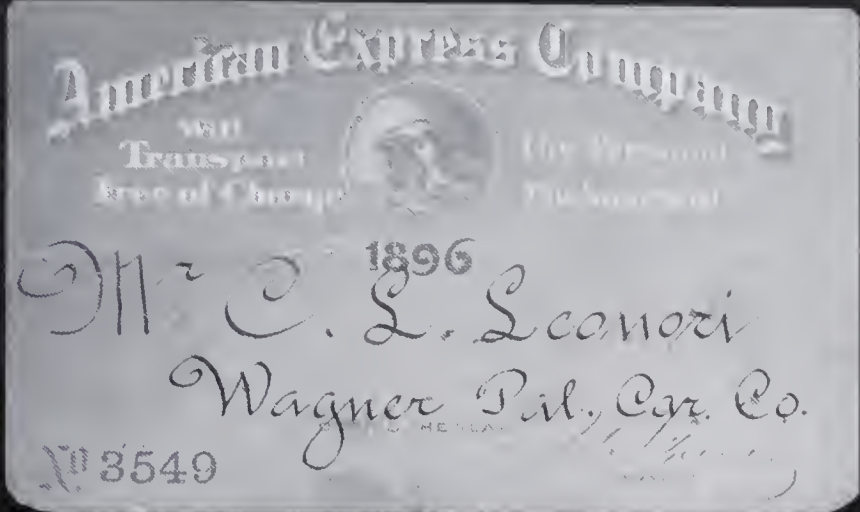 American Express Company
Will
Transport
Free of Charge
The Personal
1896
Mr C. L. Leonori
Wagner Pal. Car. Co.
No 3549